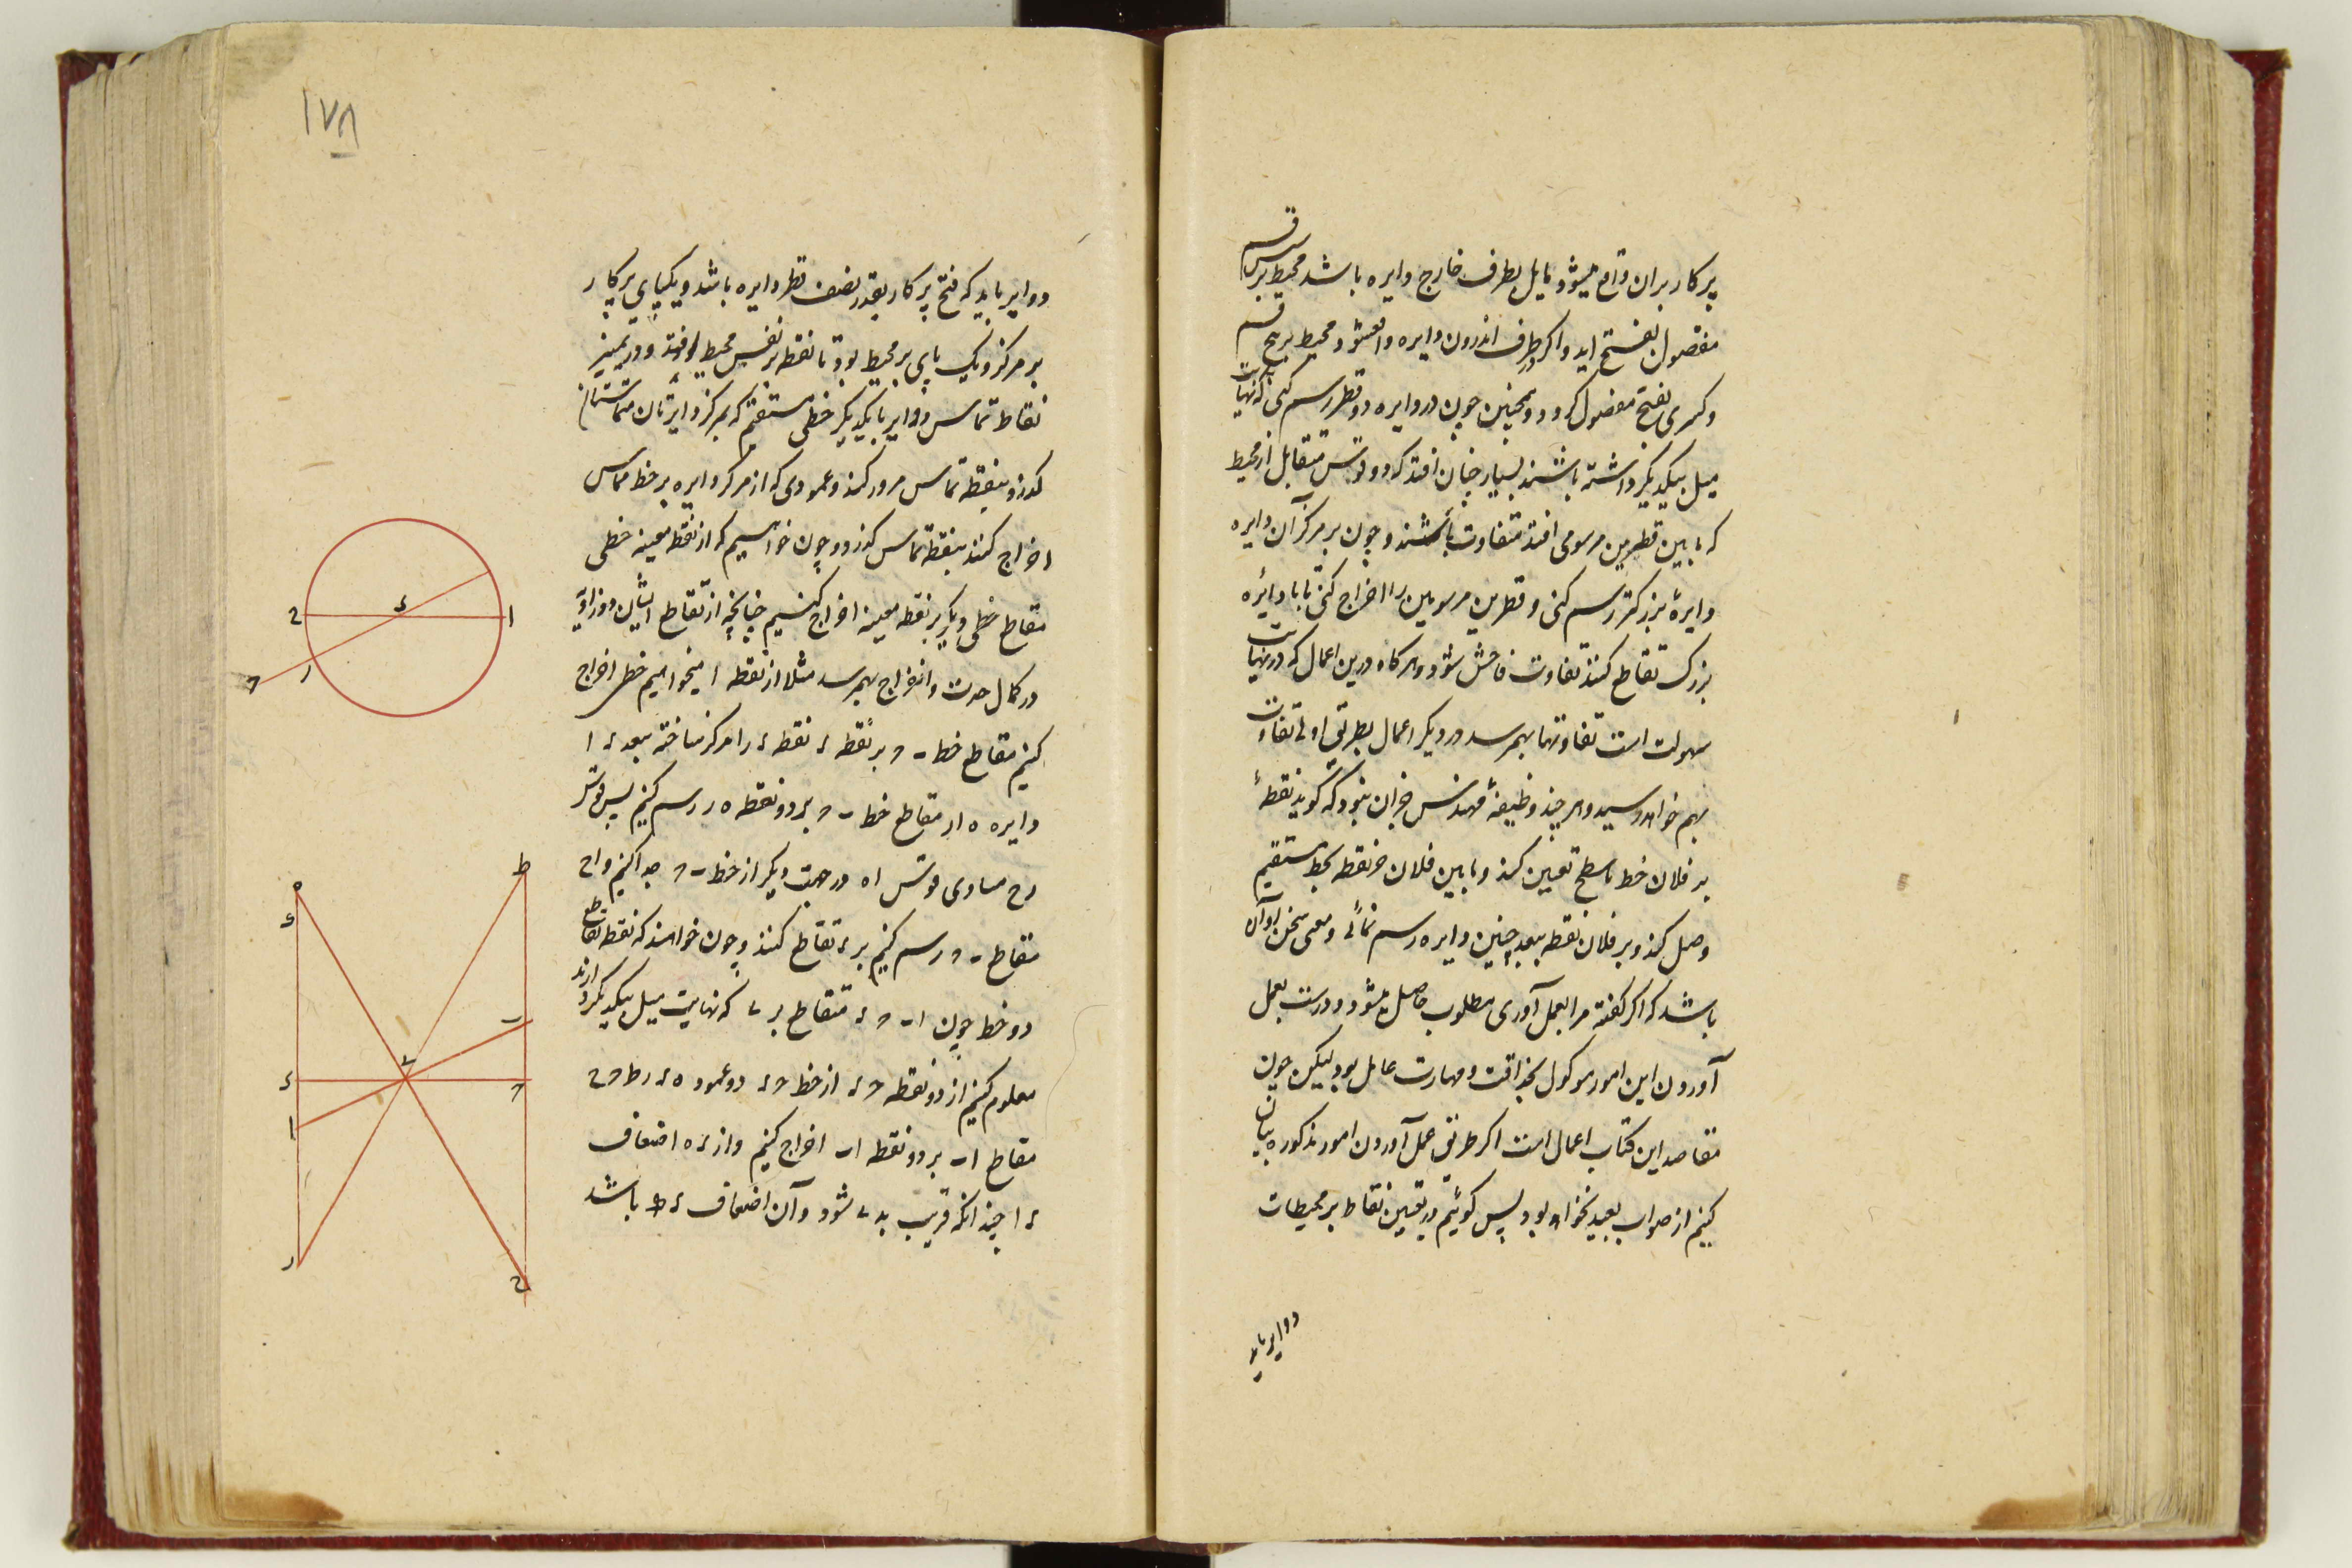 پرکار بران واقع میشود مایل بطرف خارج دایره باشد محیط بر شش قسم
مفصول بفتح اید و اکر در طرف اندرون دایره واقع شود محیط بر پنج قسم
و کسری بفتح مفصول کردد و همچنین چون در دایره دو قطر رسم کنی که نهایت
میل بیکدیکر داشته باشند بسیار چنان افتد که دو قوس متقابل از محیط
که ما بین قطرین مرسومی افتد متفاوت باشند و چون بر مرکز آن دایره
دایرهٔ بزرکتر رسم کنی و قطرین مرسومین را اخراج کنی تا با دایرهٔ
بزرک تقاطع کنند تفاوت فاحش شود و هرکاه درین اعمال که در نهایت
سهولت است تفاوتها بهم رسد در دیکر اعمال بطریق اولی تفاوت
بهم خواهد رسید و هر چند وظیفهٔ مهندس جز آن نبود که کوید نقطهٔ
بر فلان خط یا سطح تعیین کند و ما بین فلان دو نقطه بخط مستقیم
وصل کند و بر فلان نقطه ببعد چنین دایره رسم نمائی و معنی سخن او آن
باشد که اکر کفته مرا بعمل آوری مطلوب حاصل میشود و درست بعمل
آوردن این امور موکول بحذاقت و مهارت عامل بود لیکن چون
مقاصد این کتاب اعمال است اکر طریق عمل آوردن امور مذکوره بیان
کنیم از صواب بعید نخواهد بود پس کوئیم در تعیین نقاط بر محیطات
دوایر باید
۱۷۸
دوایر باید که فتح پرکار بقدر نصف قطر دایره باشد و یکپای پرکار
بر مرکز و یک پای بر محیط بود تا نقطه بر نفس محیط افتد و در تمییز
نقاط تماس دوایر با یکدیکر خطی مستقیم که بمرکز دایرتان متماستان
کذرد بنقطه تماس مرور کند و عمودی که از مرکز دایره بر خط مماس
اخراج کنند بنقطه تماس کذرد و چون خواهیم که از نقطه معینه خطی
مقاطع خطی دیکر بر نقطه معینه اخراج کنیم چنانچه از تقاطع ایشان دو زاویه
در کمال حدت و انفراج بهم رسد مثلا از نقطه ا میخواهیم خطی اخراج
کنیم مقاطع خط ب ح بر نقطه ء نقطه ء را مرکز ساخته ببعد ء ا
دایره ه ا ر مقاطع خط ب ح بر دو نقطه ه ر رسم کنیم پس قوس
ر ح مساوی قوس ا ه در جهت دیکر از خط ب ح جدا کنیم و ا ح
مقاطع ب ح رسم کنیم بر ء تقاطع کنند و چون خواهند که نقطه تقاطع
دو خط چون ا ب ح ء متقاطع بر ے که نهایت میل بیکدیکر دارند
معلوم کنیم از دو نقطه ح ء از خط ح ء دو عمود ه ء ر ط ح ح
مقاطع ا ب بر دو نقطه ا ب اخراج کنیم و از ء ه اضعاف
ء ا چندانکه قریب به ے شود و آن اضعاف ء ه باشد
ح ء ا
ر ح
ه ط
ء
ے ب
ء ح
ا
ر ح